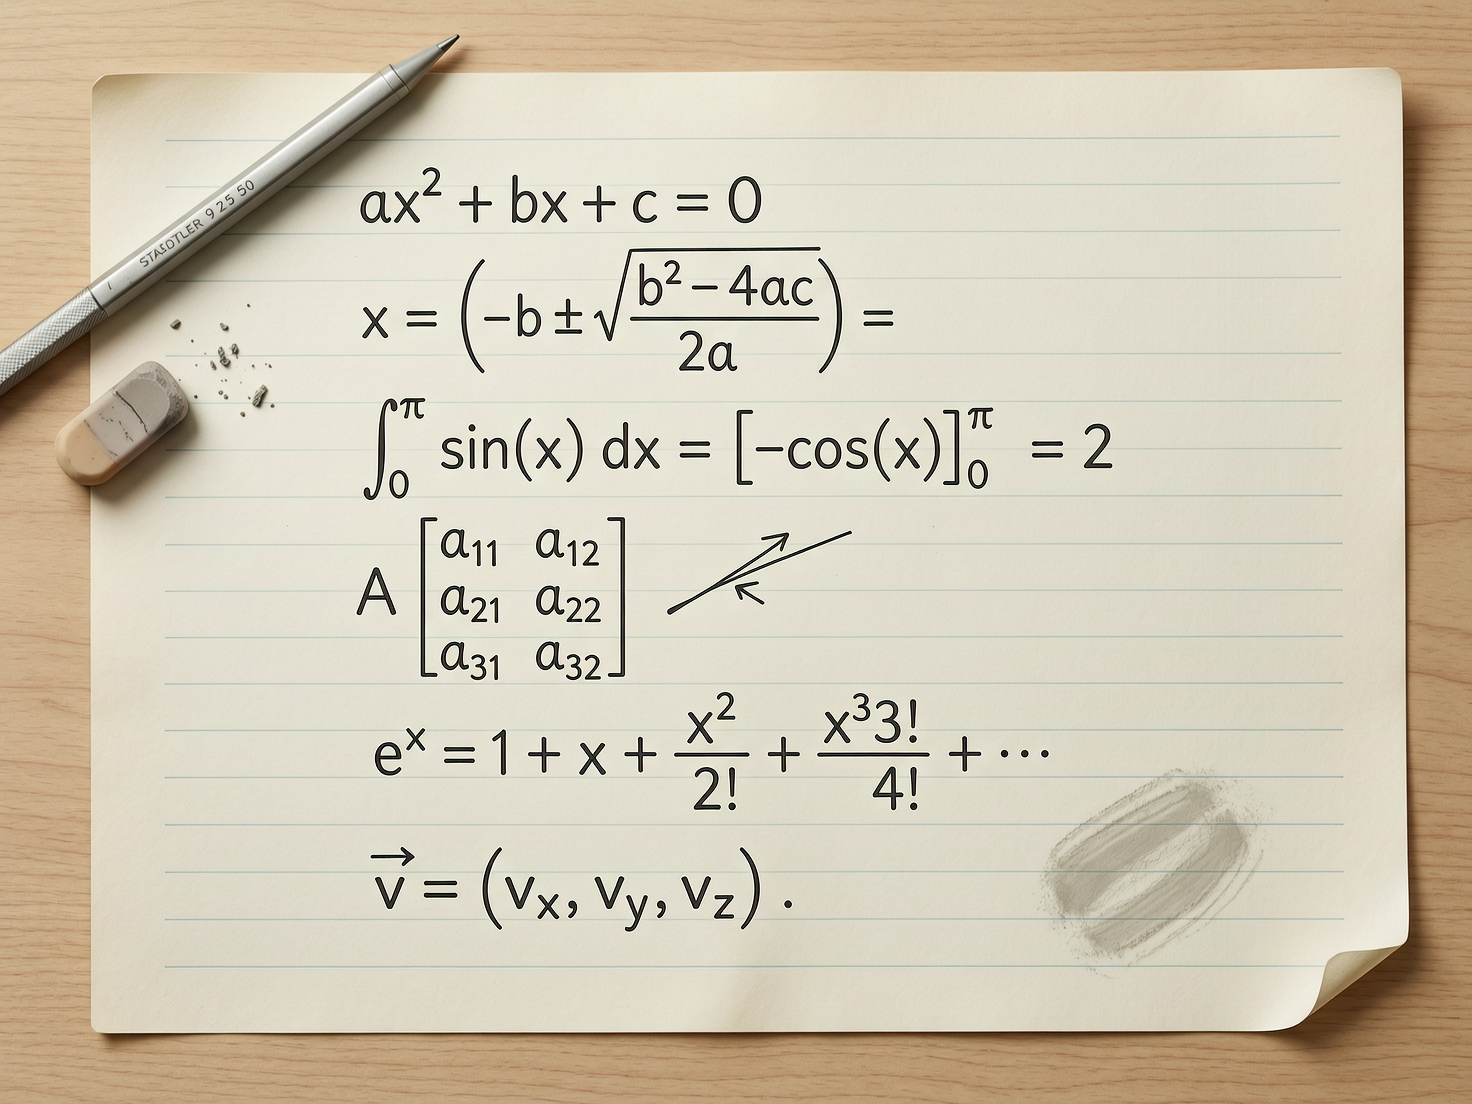 STAEDTLER 9 25 50
ax² + bx + c = 0
x = (-b ± √(b² - 4ac)/2a) =
∫₀^π sin(x) dx = [-cos(x)]₀^π = 2
A [a₁₁ a₁₂
a₂₁ a₂₂
a₃₁ a₃₂]
eˣ = 1 + x + x²/2! + x³3!/4! + ⋯
v⃗ = (vₓ, vᵧ, v_z) .